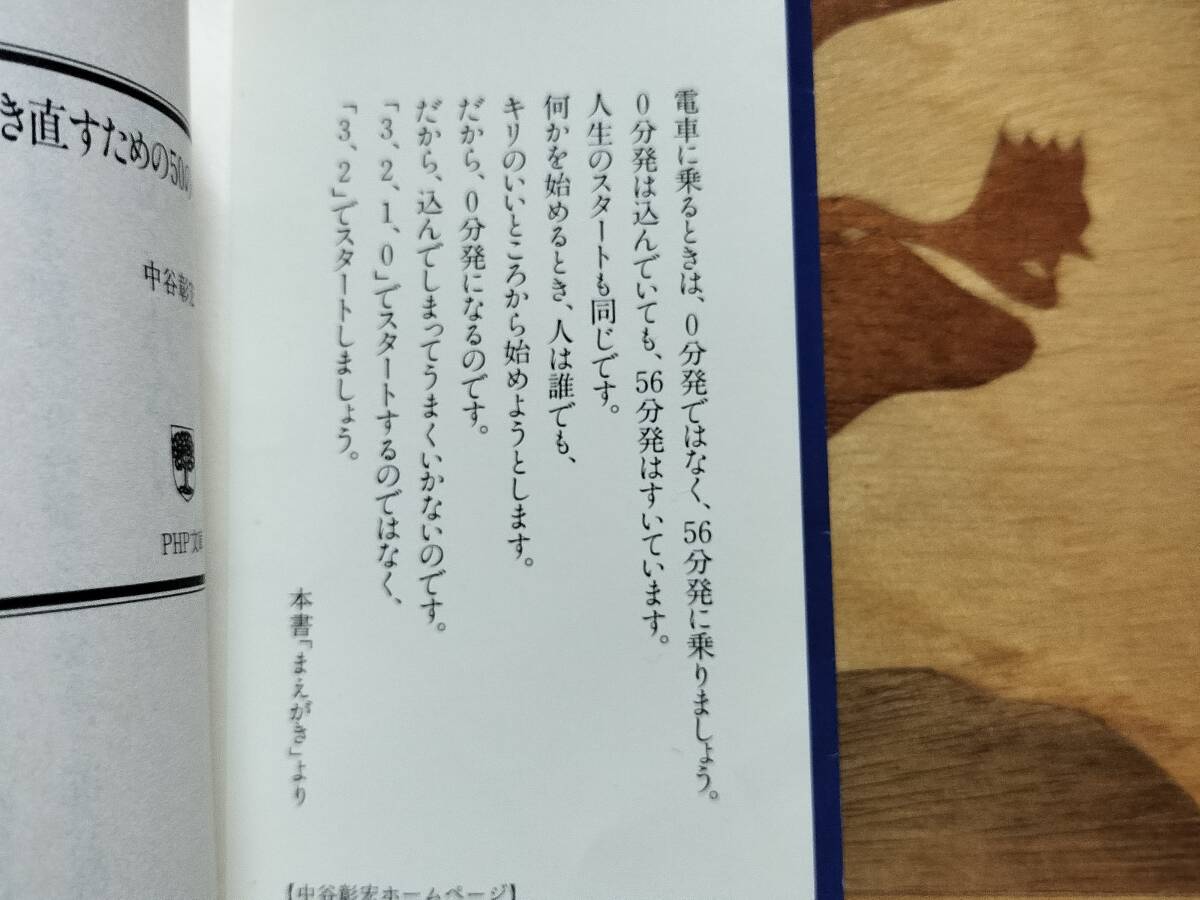 電車に乗るときは、0分発ではなく、56分発に乗りましょう。
0分発は込んでいても、56分発はすいています。
人生のスタートも同じです。
何かを始めるとき、人は誰でも、
キリのいいところから始めようとします。
だから、0分発になるのです。
だから、込んでしまってうまくいかないのです。
「3、2、1、0」でスタートするのではなく、
「3、2」でスタートしましょう。
本書「まえがき」より
【中谷彰宏ホームページ】
き直すための50の
中谷彰宏
PHP文庫